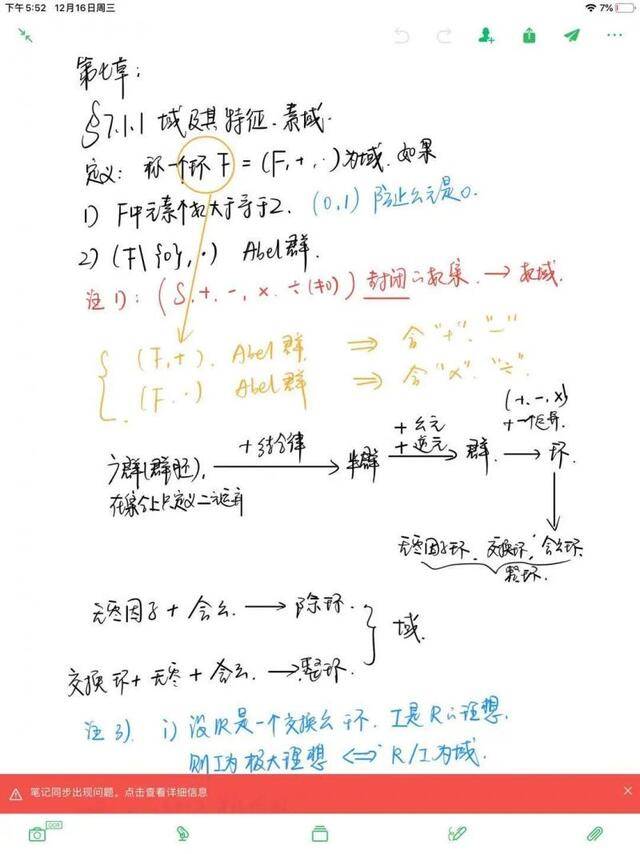 下午5:52 12月16日周三
7%
第七章:
§7.1.1 域及其特征.素域.
定义: 称一个环 F = (F,+,·)为域.如果
1) F中元素个数大于等于2. (0,1) 防止幺元是0.
2) (F\{0},·) Abel 群.
注1): (S,+,-,×,÷(≠0)) 封闭の数集. → 数域.
(F,+). Abel群. ⇒ 含"+"."-"
(F,·) Abel群 ⇒ 含"×"."÷".
(+.-.×)
+幺元
+结合律 +逆元 +一个运算.
广群(群胚), → 半群 → 群. → 环.
在集合上定义二元运算
无零因子环. 交换环, 含幺环.
整环.
无零因子 + 含幺. → 除环.
域.
交换环+无零+含幺. → 整环.
注3). i) 设R是一个交换幺环. I是Rの理想.
则I为极大理想 ⇔ R/I为域.
笔记同步出现问题,点击查看详细信息
OCR